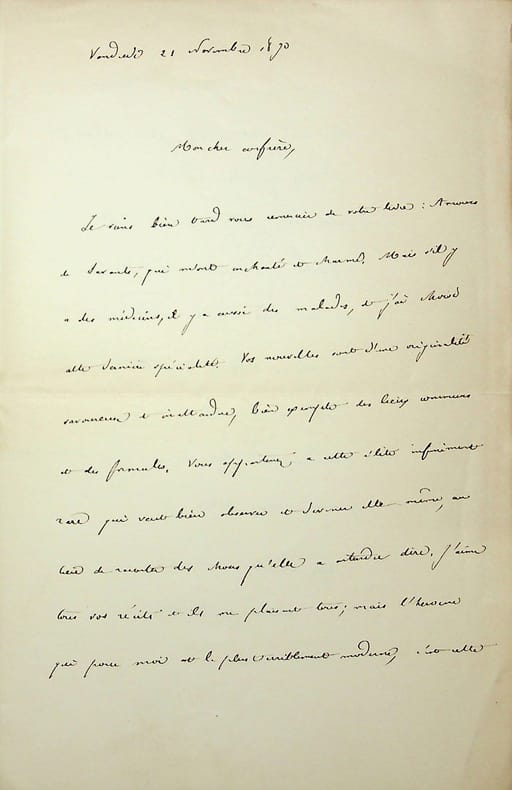 Vendredi 21 Novembre 1890
Mon cher confrère,
Je viens bien tard vous remercier de votre livre : Amours
de Savants, qui m'ont enchanté et charmé. Mais s'il y
a des médecins, il y a aussi des malades, et j'ai choisi
cette dernière spécialité. Vos nouvelles sont d'une originalité
savoureuse et inattendue, bien exempte des lieux communs
et des formules. Vous appartenez à cette élite infiniment
rare qui veut bien observer et deviner elle même, au
lieu de raconter des choses qu'elle a entendu dire. J'aime
tous vos récits et ils me plaisent tous; mais l'héroïne
qui pour moi est la plus terriblement moderne, c'est cette